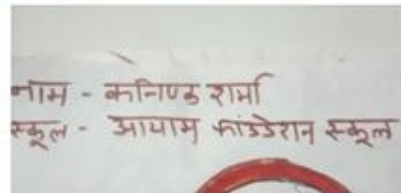 नाम - कनिष्क शर्मा
स्कूल - आयाम फांउडेशन स्कूल